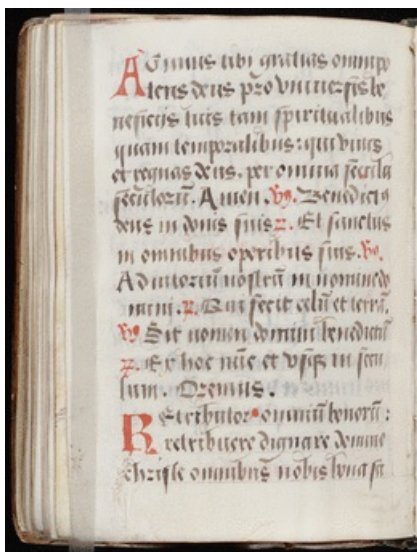 AGimus tibi gratias omnipo
tens deus pro vniuersis be
neficijs tuis tam spiritualibus
quam temporalibus: qui viuis
et regnas deus. per omnia secula
seculorū. Amen. V̷. Benedict9
deus in donis suis R̷. Et sanctus
in omnibus operibus suis. V̷.
Adiutoriū nostrū in nomine do
mini. R̷. Qui fecit celū et terrā.
V̷ Sit nomen domini benedictū
R̷. Ex hoc nūc et vsq3 in secu
lum. Oremus.
REtributor omniū bonorū:
retribuere dignare domine
christe omnibus nobis bona fa